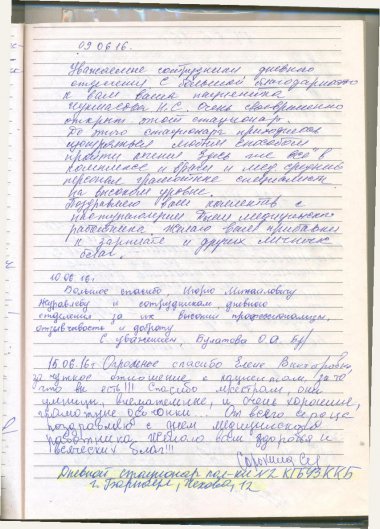 09.06.16.
Уважаемые сотрудники дневного
отделения с большой благодарностью
к вам ваша пациентка
Н.С. Очень своевременно
открыт этот стационар.
До этого стационара приходилось
любыми способами
пройти лечение здесь же все в
комплексе и врачи и мед. средний
персонал грамотные специалисты
на высоком уровне.
Поздравляю Вам коллектив с
наступающим Днем медицинского
работника. Желаю вам прибавки
к зарплате и других личных
благ.
10.06.16г.
Большое спасибо, Игорю Михайловичу
Журавлеву и сотрудникам дневного
отделения за их высокий профессионализм,
отзывчивость и доброту
С уважением, Булатова О.А.
15.06.16г Огромное спасибо Елене Викторовне
за чуткое отношение к пациентам, за то
что вы есть!!! Спасибо сестрам, они
умницы, внимательные, и очень хорошие,
грамотные От всего сердца
поздравляю с днем медицинского
работника, желаю всем здоровья и
всяческих благ!!!
Сорокина
Дневной стационар пол-ки №2 КГБУЗ ККБ
г. Барнаул, Чехова, 12